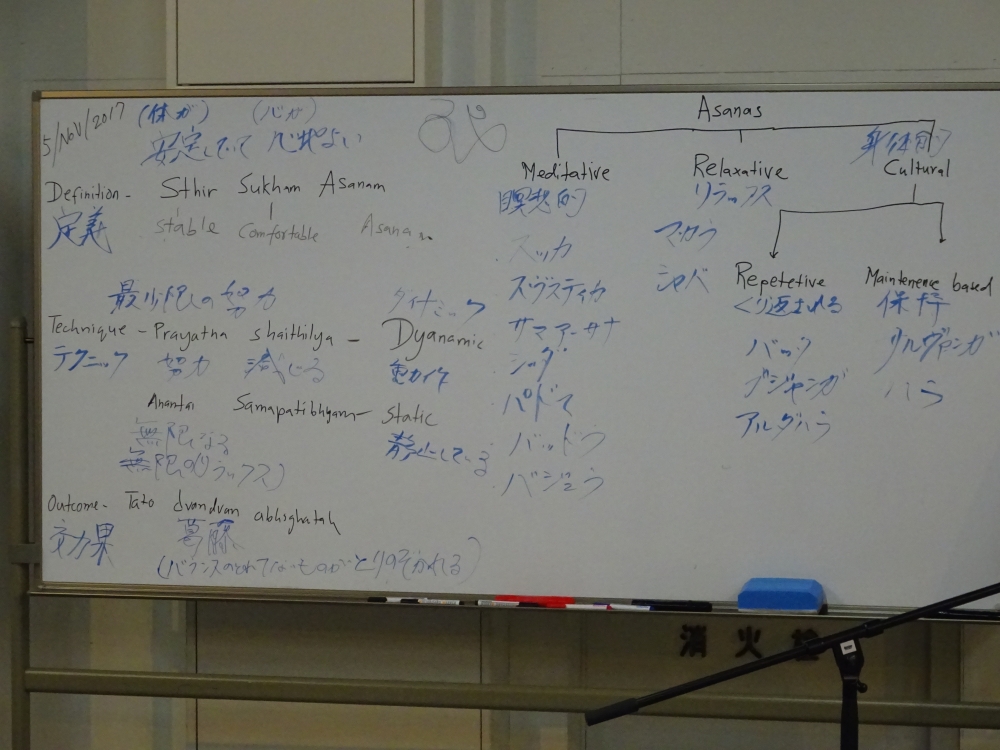 5/Nov/2017
(体が) (心が)
安定していて 心地よい
Definition - Sthir Sukham Asanam
定義 stable Comfortable Asanam
最少限の努力 ダイナミック
Technique - Prayatna shaithilya - Dyanamic
テクニック 努力 減じる 動作
Anantai Samapatibhyam - static
無限になる 静止している
無限の(リラックス)
Outcome - Tato dvandvan abhighatah
効果 葛藤
(バランスのとれてないものがとりのぞかれる)
Asanas
身体的
Meditative Relaxative Cultural
瞑想的 リラックス
スッカ
スヴスティカ
サマアーサナ
シッダ
パドマ
バッドラ
バジュラ
マカラ
シャバ
Repetetive
くり返される
バック
ブジャンガ
アルダハラ
Maintenence based
保持
サルヴァンガ
ハラ
消火栓